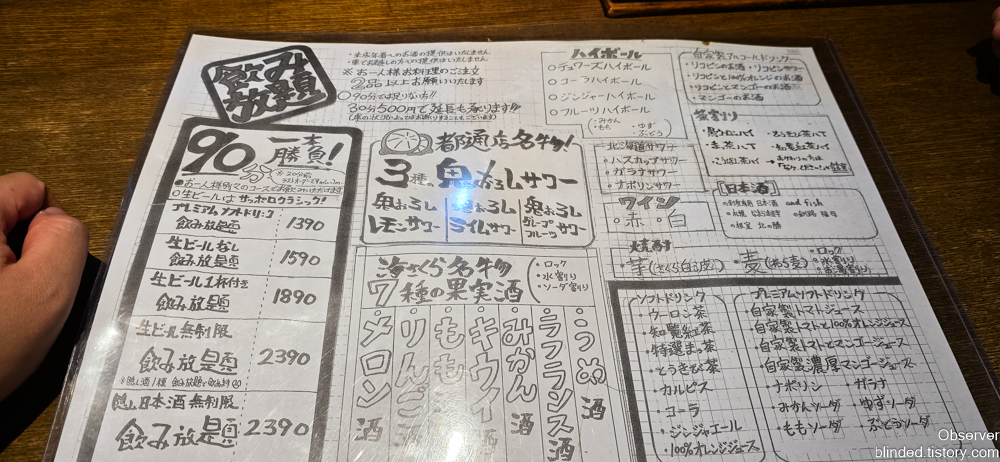 飲み
放題
・未成年者へのお酒の提供はいたしません
・車でお越しの方への提供はいたしません
※お一人様お料理のご注文
2品以上お願いいたします
○90分では足りない方!!
30分500円で延長も承ります!!
90分
一本
勝負!
●お一人様別々のコースでお選びいただけます
○生ビールはサッポロクラシック!
飲み放題 1390
生ビールなし
飲み放題 1590
生ビール1杯付き
飲み放題 1890
生ビール無制限
飲み放題 2390
隠し日本酒無制限
飲み放題 2390
都通店名物!
3種の鬼おろしサワー
鬼おろし
レモンサワー
鬼おろし
ライムサワー
鬼おろし
グレープフルーツサワー
海さくら名物
7種の果実酒
・ロック
・水割り
・ソーダ割り
・メロン酒
・りんご酒
・もも酒
・キウイ酒
・みかん酒
・ラフランス酒
・うめ酒
ハイボール
○デュワーズハイボール
○コーラハイボール
○ジンジャーハイボール
○フルーツハイボール
・みかん
・もも
・ゆず
・ぶどう
北海道サワー
・ハスカップサワー
・ガラナサワー
・ナポリンサワー
ワイン
・赤・白
自家製アルコールドリンク
・リコピンのお酒・リコピンサワー
・リコピンと100%オレンジのお酒
・リコピンとマンゴーのお酒
・マンゴーのお酒
茶割り
日本酒
焼酎
・芋(さくら白波)
・麦
・ロック
・水割り
・お湯割り
ソフトドリンク
・ウーロン茶
・知覧紅茶
・特選まっ茶
・とうきび茶
・カルピス
・コーラ
・ジンジャエール
・100%オレンジジュース
プレミアムソフトドリンク
・自家製トマトジュース
・自家製トマトと100%オレンジジュース
・自家製トマトとマンゴージュース
・自家製濃厚マンゴージュース
・ナポリン ・ガラナ
・みかんソーダ ・ゆずソーダ
・ももソーダ ・ぶどうソーダ
Observer
blinded.tistory.com